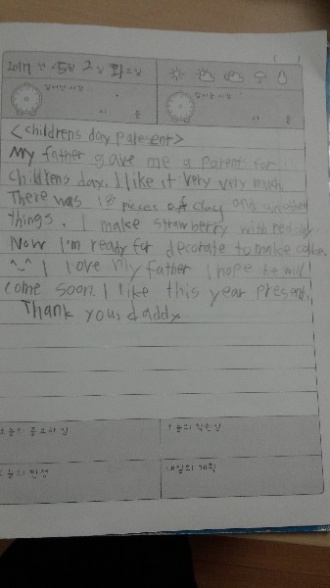 2017 년 5월 2일 화요일
일어난 시각
시 분
잠자는 시각
시 분
<childrens day paresent>
My father gave me a parent for
childrens day. I like it very very much.
There was 18 pieces of clay and
things. I make strawberry with red clay
Now I'm ready for decorate to make
^_^ I love my father I hope he will
come soon. I like this year present.
Thank you, daddy
오늘의 중요한 일
오늘의 착한일
오늘의 반성
내일의 계획